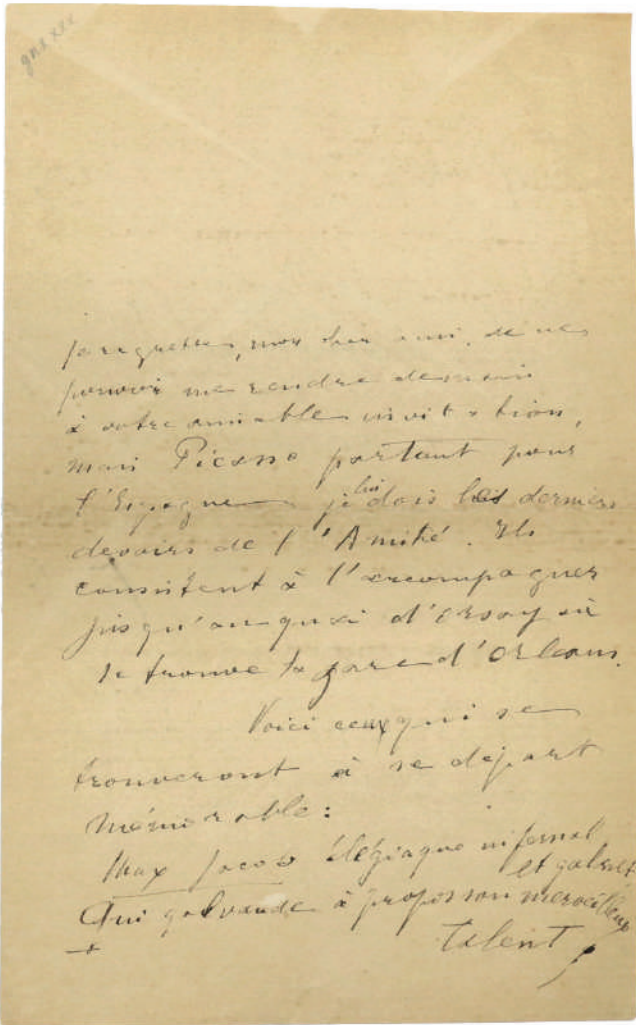 Je regrette, mon cher ami, de ne
pouvoir me rendre demain
à votre aimable invitation,
mais Picasso partant pour
l'Espagne je lui dois les derniers
devoirs de l'Amitié. Ils
consistent à l'accompagner
jusqu'au quai d'Orsay où
se trouve la gare d'Orléans.
Voici ceux qui se
trouveront à ce départ
mémorable:
Max Jacob élégiaque infernal
et galant
Qui galvaude à propos son merveilleux
talent